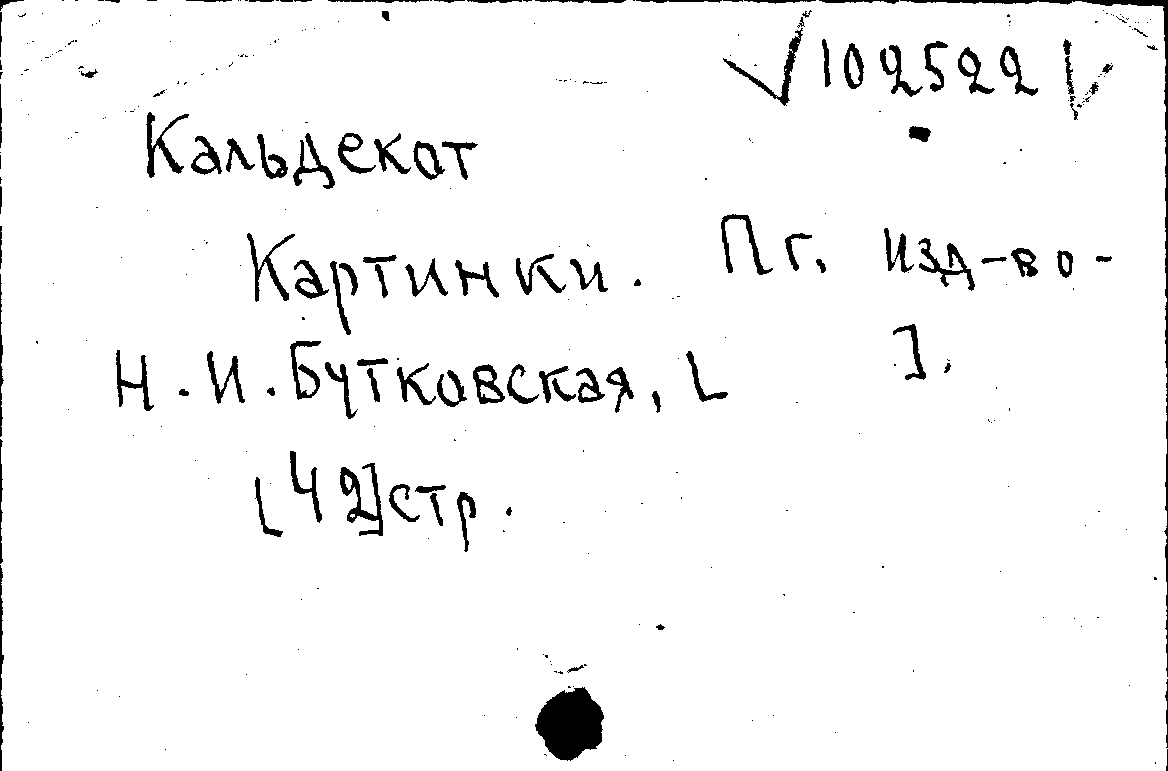 102522
Кальдекот
Картинки. Пг. изд-во-
Н.И.Бутковская, [ ].
[42]стр.